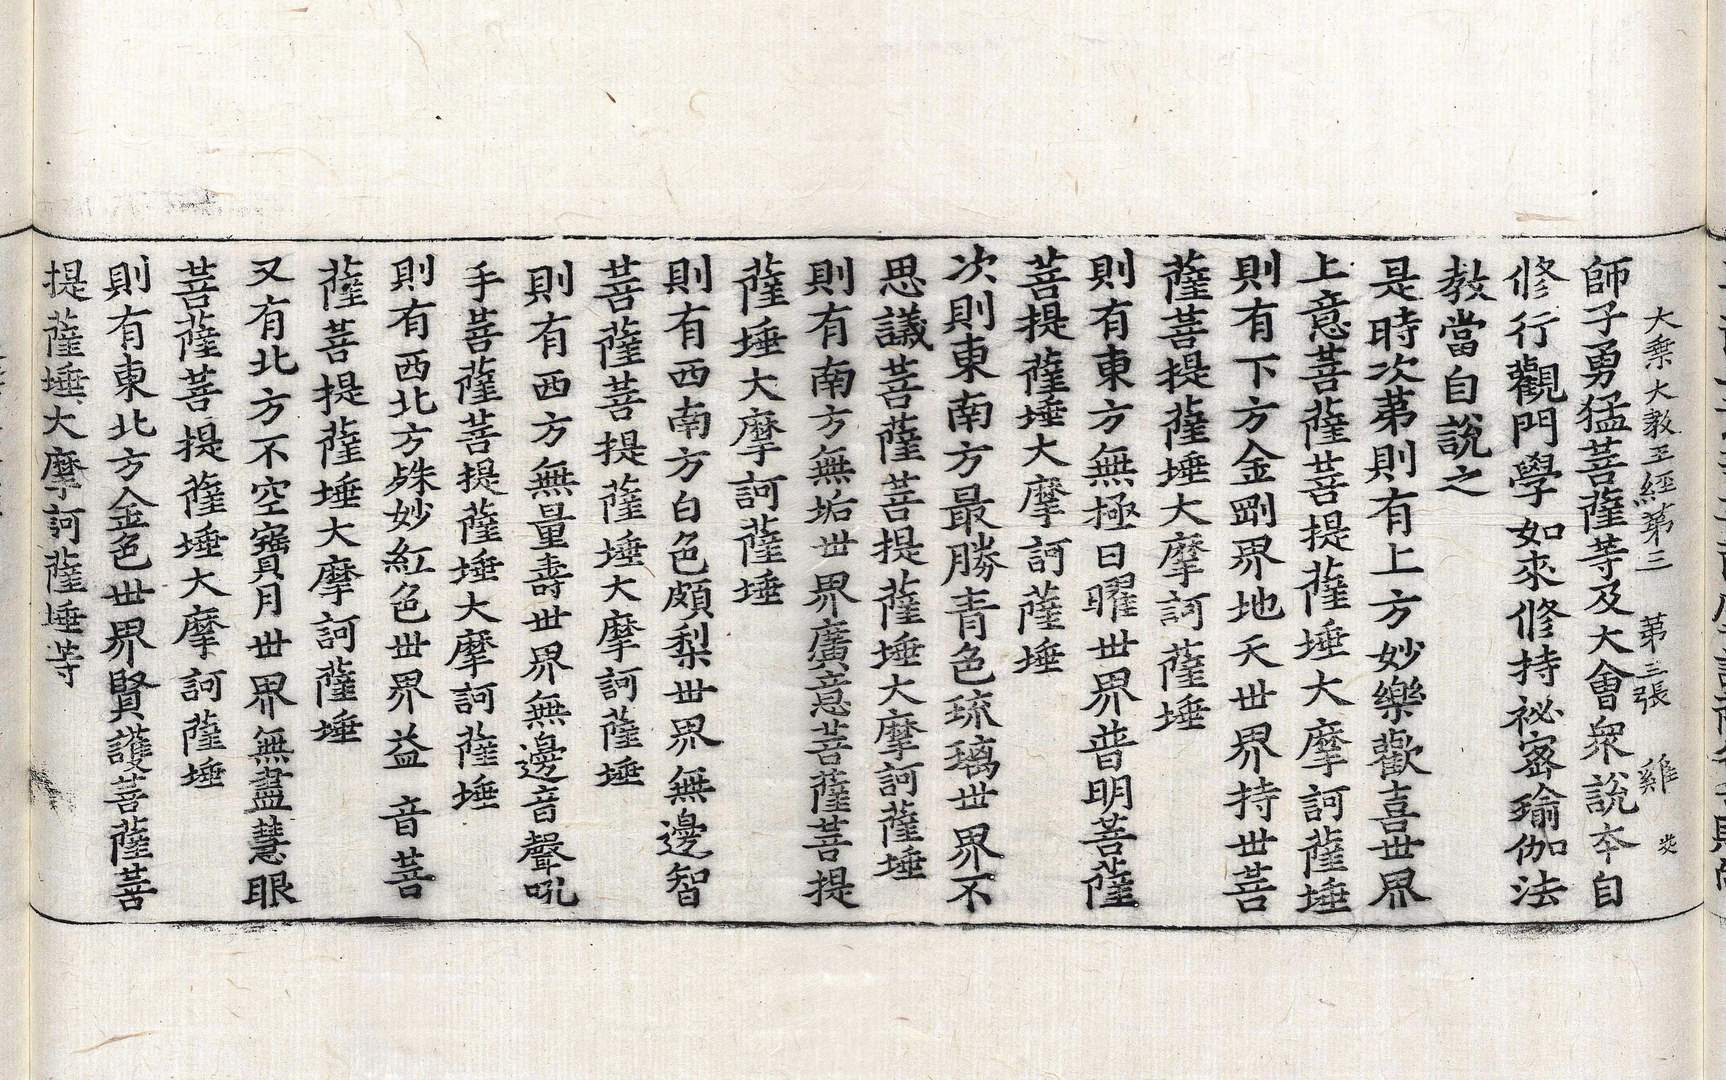 大乘大教王經第三 第三張 雞
師子勇猛菩薩等及大會衆說本自
修行觀門學如來修持祕密瑜伽法
教當自說之
是時次第則有上方妙樂歡喜世界
上意菩薩菩提薩埵大摩訶薩埵
則有下方金剛界地天世界持世菩
薩菩提薩埵大摩訶薩埵
則有東方無極日曜世界普明菩薩
菩提薩埵大摩訶薩埵
次則東南方最勝青色琉璃世界不
思議菩薩菩提薩埵大摩訶薩埵
則有南方無垢世界廣意菩薩菩提
薩埵大摩訶薩埵
則有西南方白色頗梨世界無邊智
菩薩菩提薩埵大摩訶薩埵
則有西方無量壽世界無邊音聲吼
手菩薩菩提薩埵大摩訶薩埵
則有西北方殊妙紅色世界益音菩
薩菩提薩埵大摩訶薩埵
又有北方不空寶月世界無盡慧眼
菩薩菩提薩埵大摩訶薩埵
則有東北方金色世界賢護菩薩菩
提薩埵大摩訶薩埵等